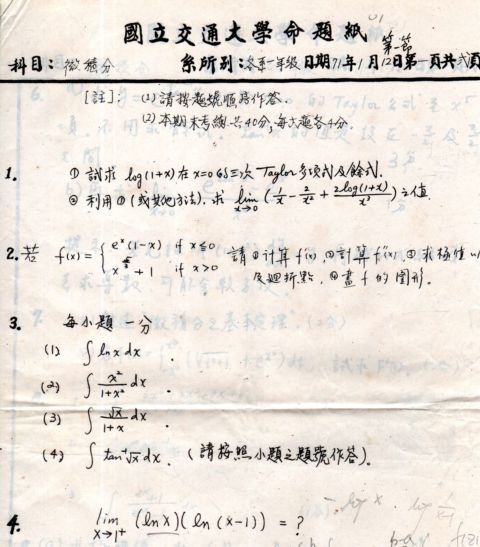 國立交通大學命題紙
01
第一節
科目：微積分 系所別：各系一年級 日期71年1月12日第一頁共貳頁
[註]：(1) 請按題號順序作答.
(2) 本期末考總共40分，每大題各4分.
1. ① 試求 log(1+x) 在 x=0 的三次 Taylor 多項式及餘式.
② 利用①(或其他方法), 求 lim x→0 (1/x - 2/x² + 2log(1+x)/x³) 之值.
2. 若 f(x) = { e^x(1-x) if x≤0 請①計算 f'(x), ②計算 f''(x), ③求極值以
+ 1 if x>0 及迴折點, ④畫 f 的圖形.
3. 每小題一分
(1) ∫ ln x dx .
(2) ∫ x²/(1+x²) dx .
(3) ∫ √x/(1+x) dx .
(4) ∫ tan⁻¹√x dx . (請按照小題之題號作答).
4. lim x→1⁺ (ln x)(ln (x-1)) = ?